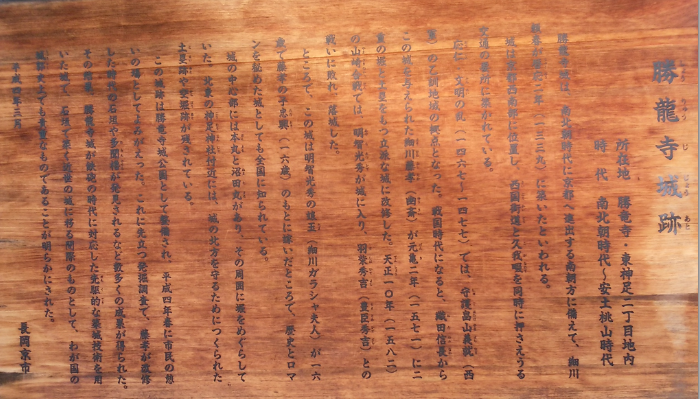 勝龍寺城跡
所在地 勝竜寺・東神足二丁目地内
時代 南北朝時代～安土桃山時代
勝龍寺城は、南北朝時代に京都へ進出する南朝方に備えて、細川
頼春が暦応二年（一三三九）に築いたといわれる。
城は京都の西南部に位置し、西国街道と久我畷を同時に押さえうる
交通の要所に築かれている。
応仁・文明の乱（一四六七～一四七七）では、守護畠山義就（西
軍）の乙訓地域の拠点となった。戦国時代になると、織田信長から
この城を与えられた細川藤孝（幽斉）が元亀二年（一五七一）に二
重の堀と土塁をもつ立派な城に改修した。天正一〇年（一五八二）
の山崎合戦では、明智光秀が城に入り、羽柴秀吉（豊臣秀吉）との
戦いに敗れ、落城した。
ところで、この城は明智光秀の娘玉（細川ガラシャ夫人）が一六
歳で藤孝の子忠興（一六歳）のもとに嫁いだところで、歴史とロマ
ンを秘めた城としても全国に知られている。
城の中心部には本丸と沼田丸があり、その周囲に堀をめぐらして
いた。北東の神足神社付近には、城の北方を守るためにつくられた
土塁跡や空堀跡が残されている。
この城跡は勝龍寺城公園として整備され、平成四年春に市民の憩
いの場としてよみがえった。これに先立つ発掘調査で、藤孝が改修
した時代の石垣や多聞櫓が発見されるなど数多くの成果が得られた。
その結果、勝龍寺城が鉄砲の時代に対応した先駆的な築城技術を用
いた城で、石垣で築く近世の城に移る間際のものとして、わが国の
城郭史上でも貴重なものであることが明らかにされた。
平成四年三月
長岡京市